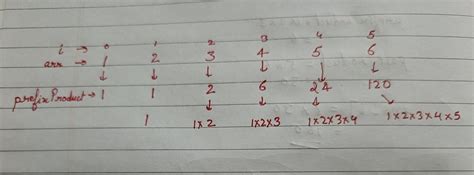 i → 0 1 2 3 4 5
arr → 1 2 3 4 5 6
↓ ↓ ↓ ↓ ↓
prefixProduct → 1 1 2 6 24 120
1 1x2 1x2x3 1x2x3x4 1x2x3x4x5